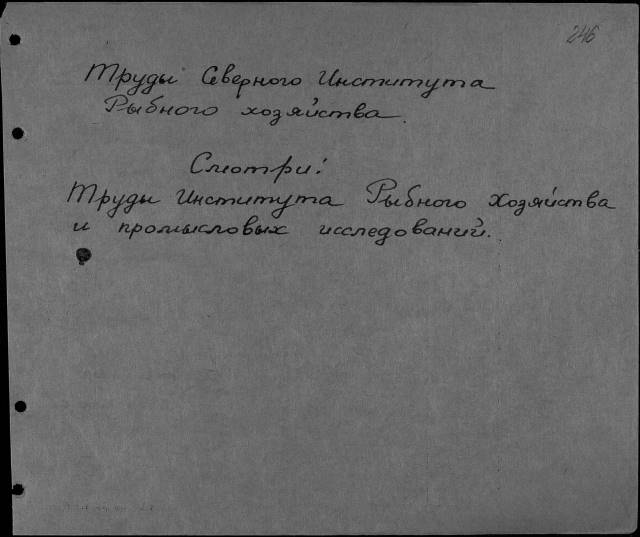 246
Труды Северного Института
Рыбного хозяйства.
Смотри:
Труды Института Рыбного Хозяйства
и промысловых исследований.